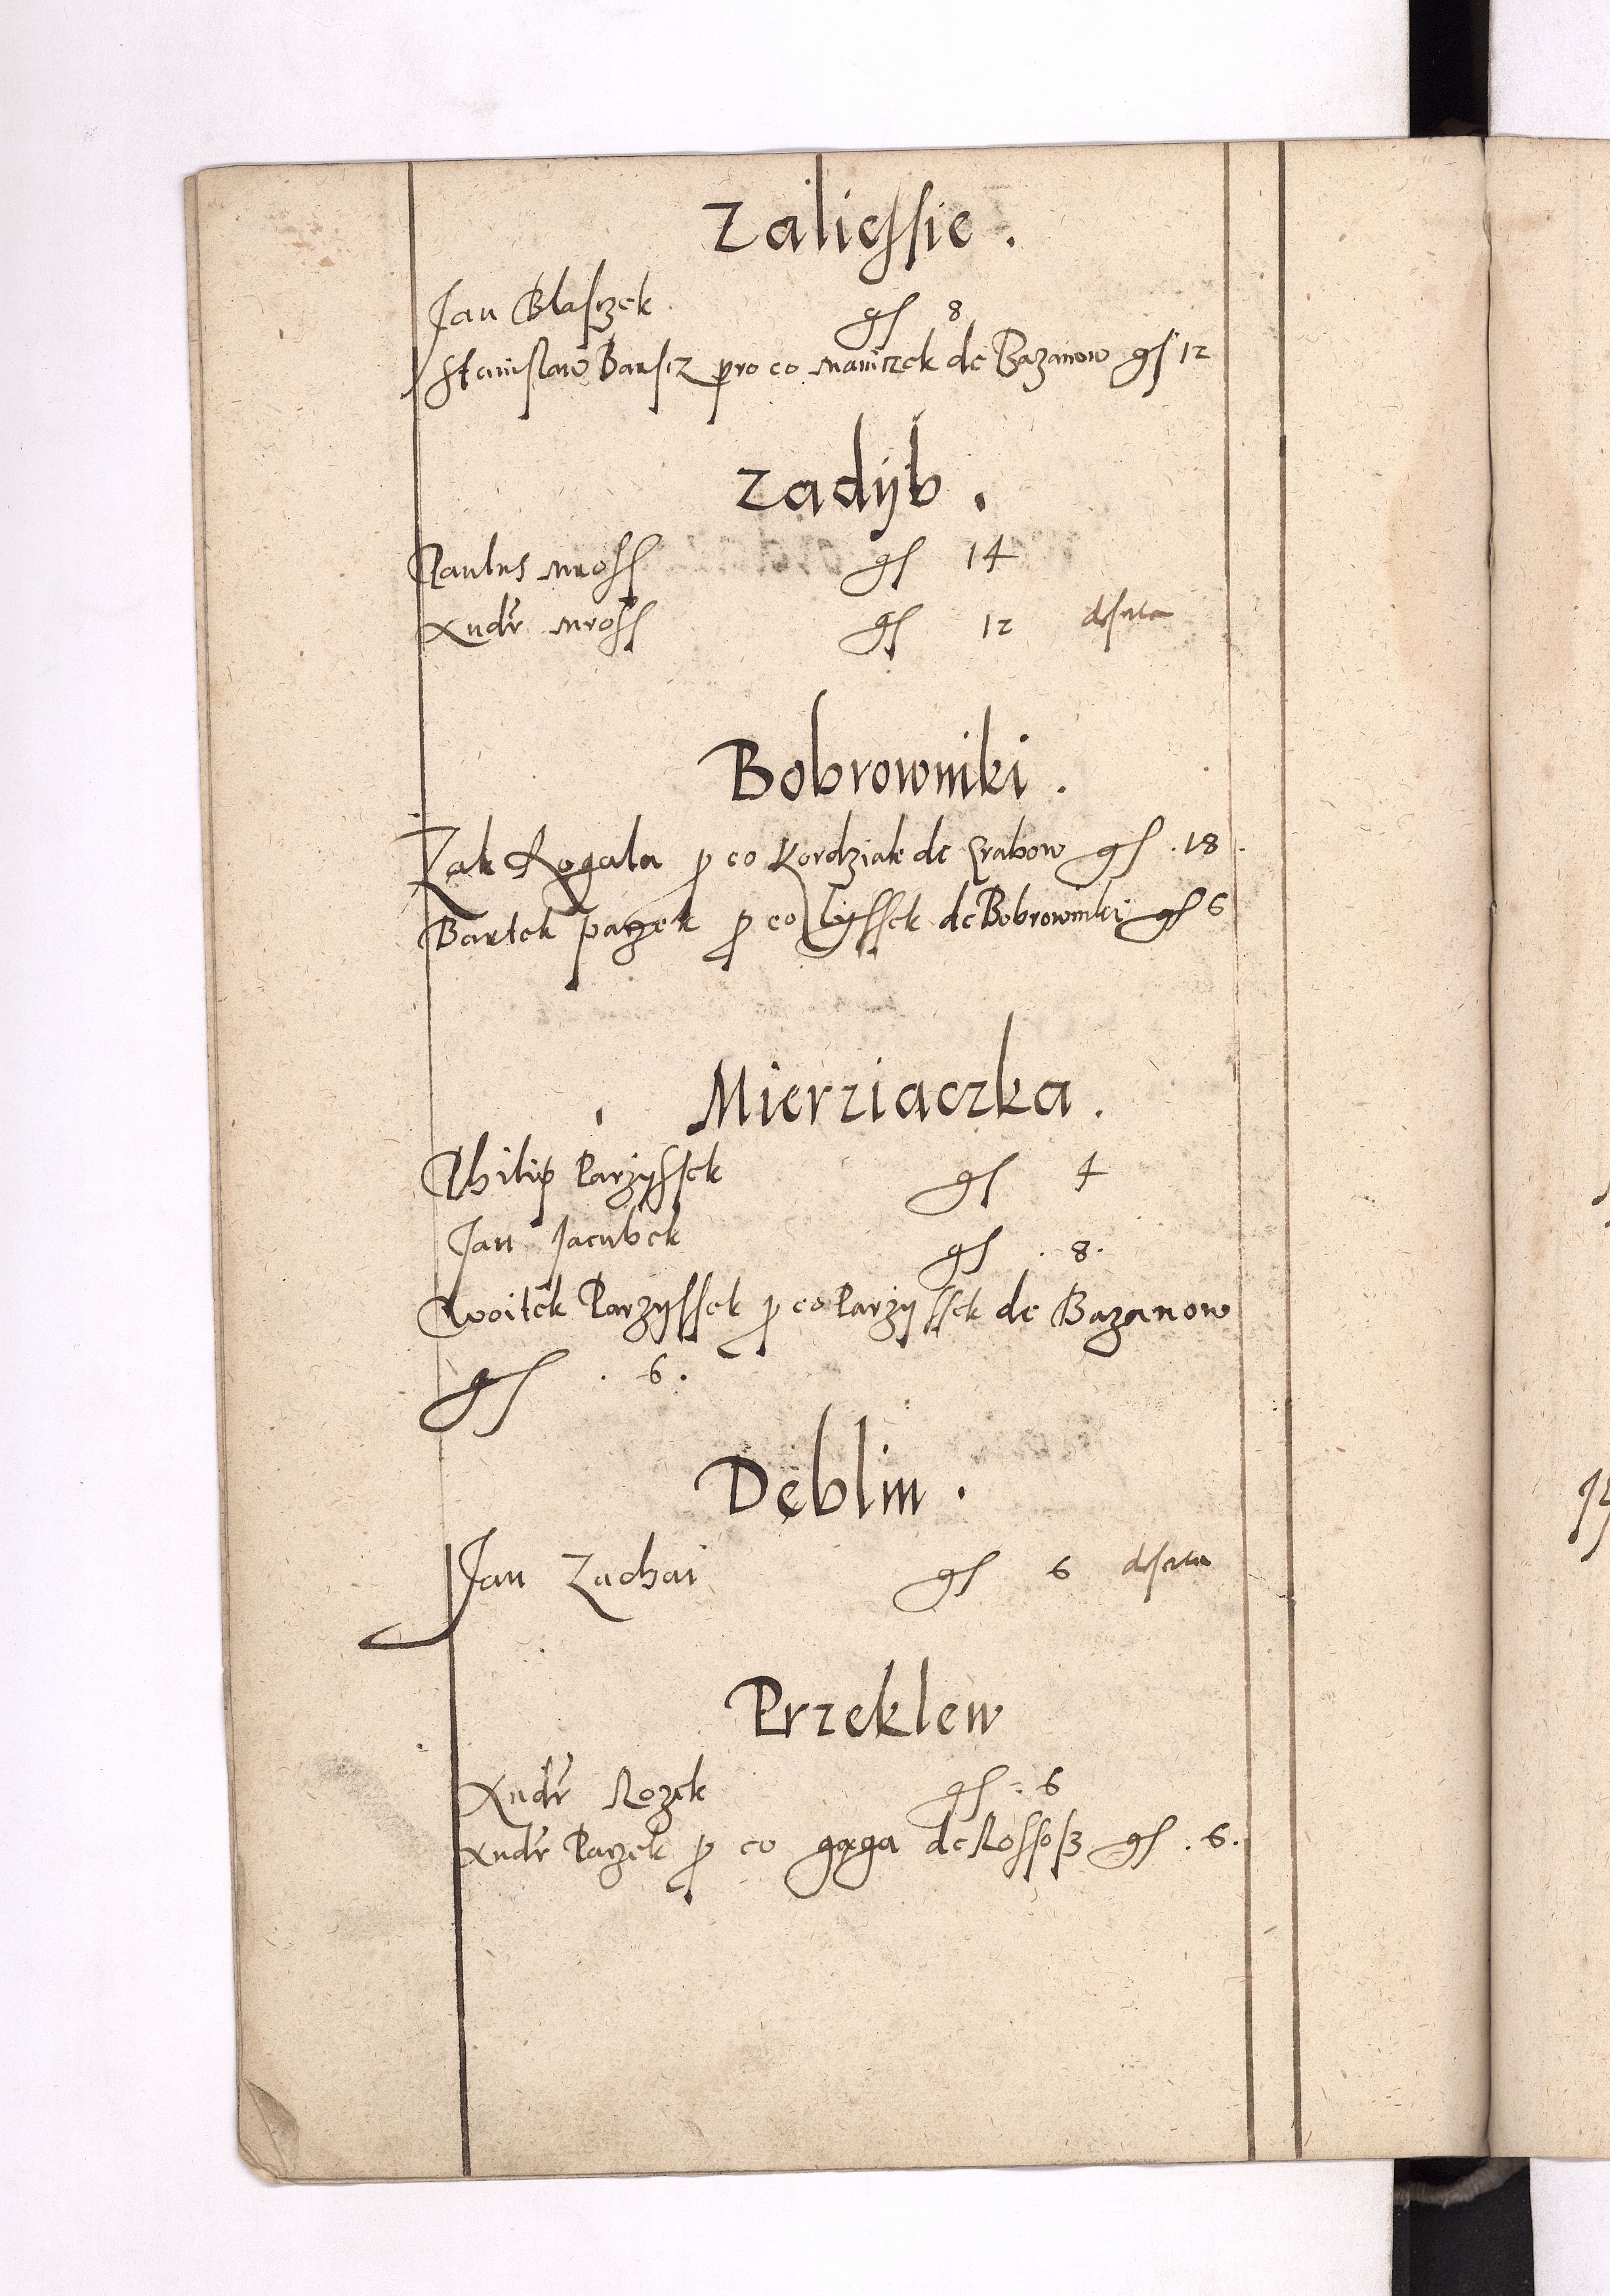 Zaliessie.
Jan Blasczek gs 8
Stanislaw Barscz pro eo Maniczek de Bazanow gs 12
Zadÿb.
Paulus Mross gs 14
Andr Mross gs 12 deserta
Bobrowniki.
Zak Rogala p eo Kordziak de Grabow gs. 18.
Bartek pazek p eo Lyssek de Bobrowniki gs 6
Mierziaczka.
Philip Parzyssek gs 4
Jan Jacubek gs. 8.
Woitek Parzyssek p eo Parzyssek de Bazanow
gs. 6.
Dęblin.
Jan Zachai gs 6 deserta
Przeklew
Andr Rozek gs: 6
Andr Pazek p eo gąga de Rossosz gs. 6.